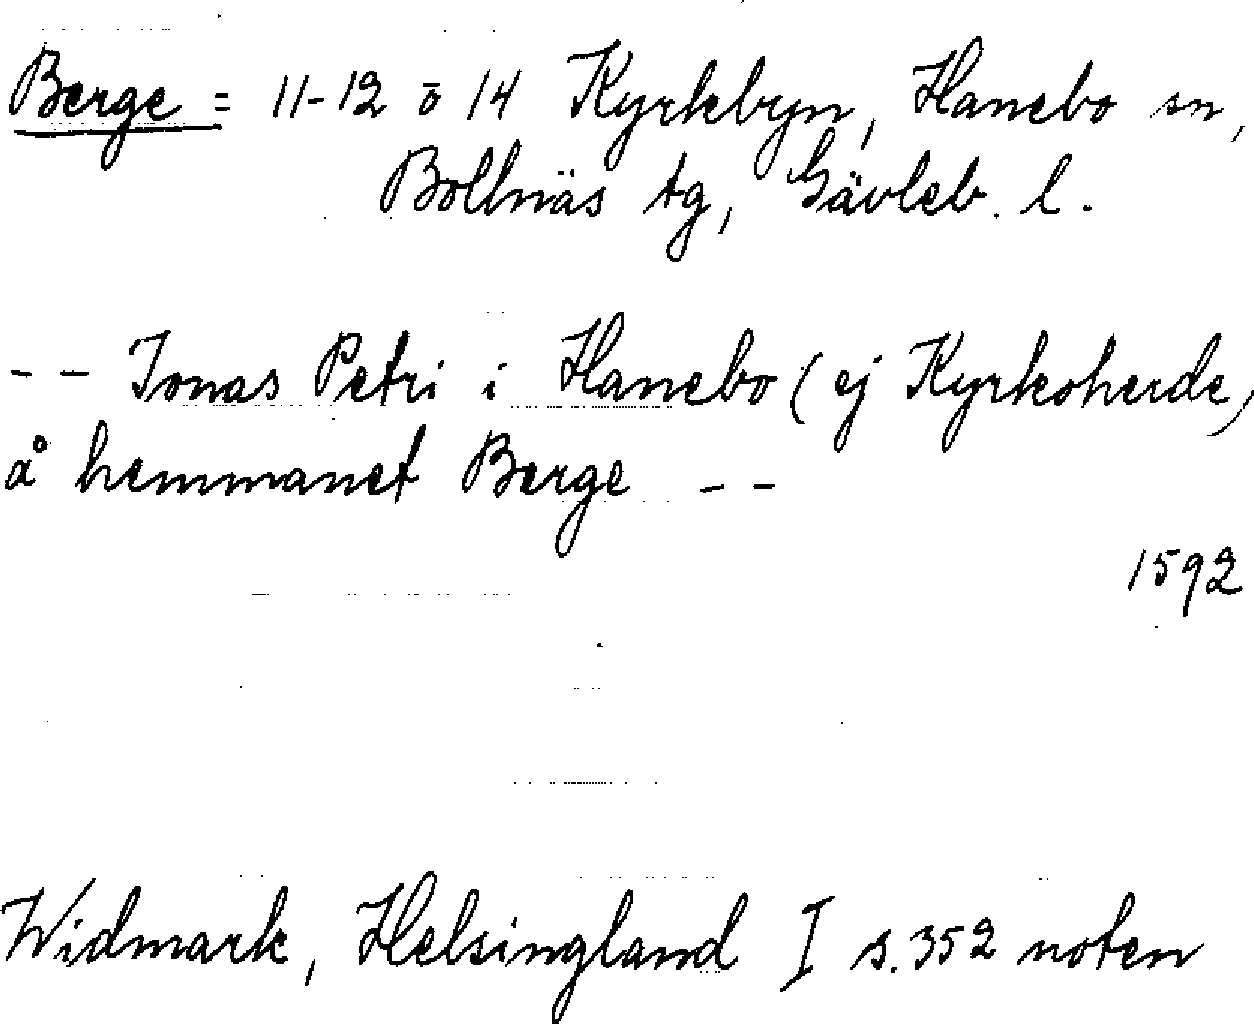 Berge = 11-12 o 14 Kyrkbyn, Hanebo sn,
Bollnäs tg, Gävleb. l.
-- Jonas Petri i Hanebo (ej Kyrkoherde,
å hemmanet Berge --
1592
Widmark, Helsingland I s. 352 noten